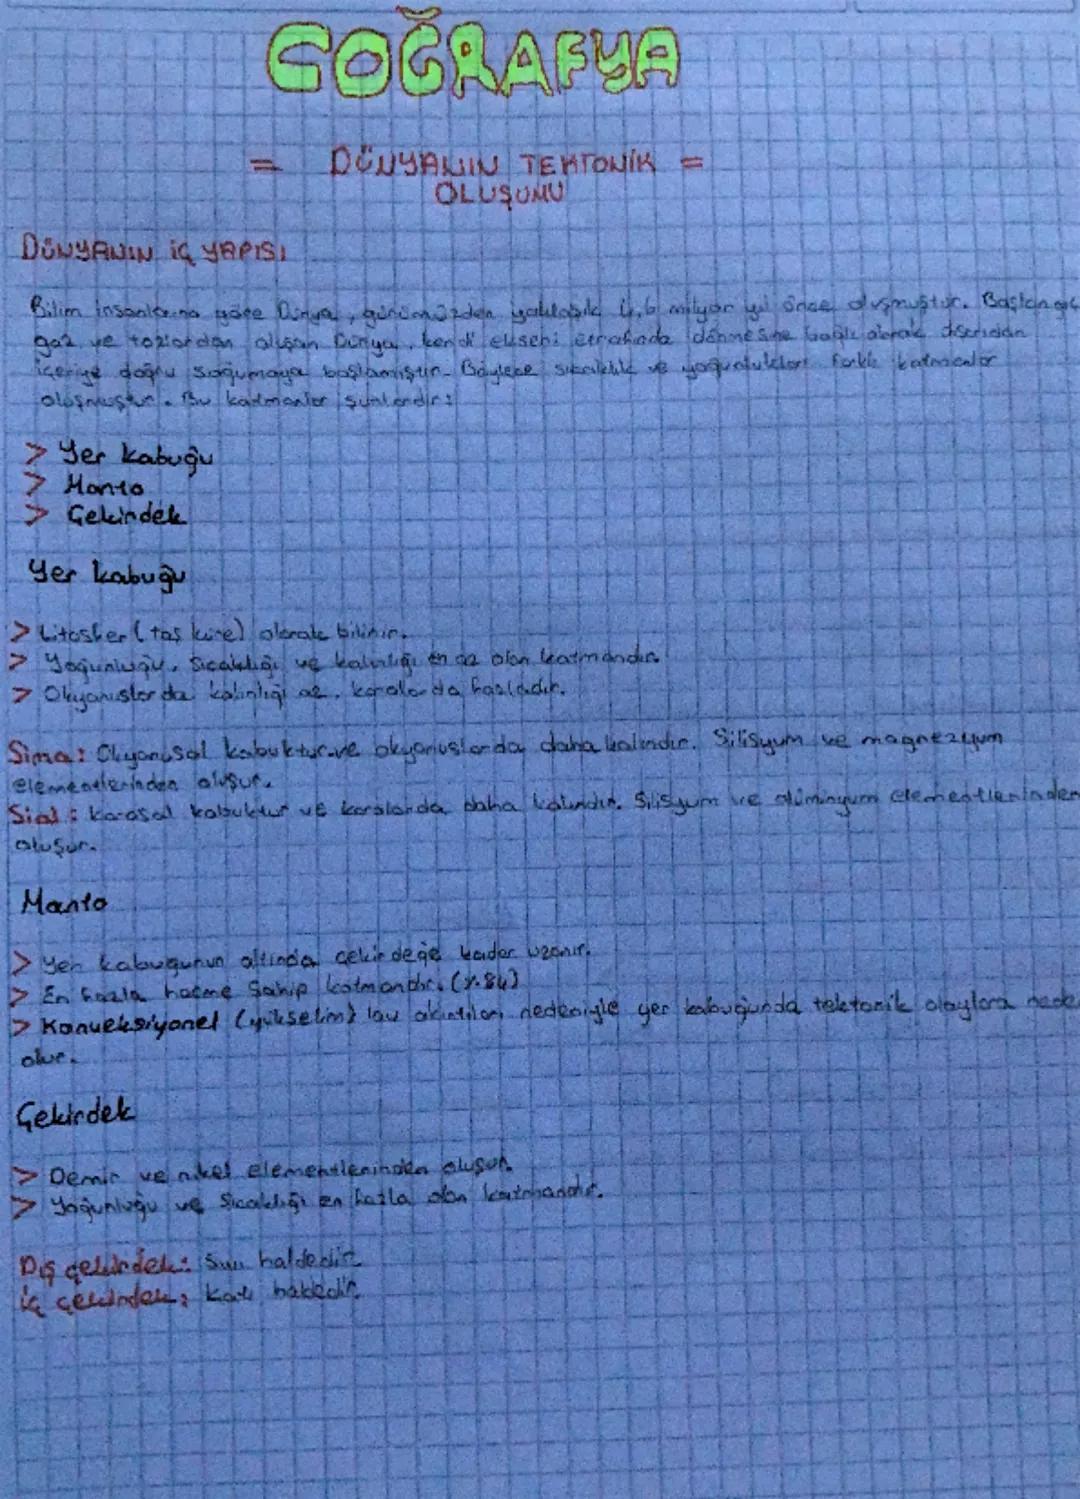 COĞRAFYA
= DÜNYANIN TEKTONİK =
OLUŞUMU
DÜNYANIN İÇ YAPISI
Bilim insanlarına göre Dünya, günümüzden yaklaşık 4,6 milyar yıl önce oluşmuştur. Başlangıç
gaz ve tozlardan oluşan Dünya, kendi ekseni etrafında dönmesine bağlı olarak dışarıdan
içeriye doğru soğumaya başlamıştır. Böylece sıcaklık ve yoğunlukları farklı katmanlar
oluşmuştur. Bu katmanlar şunlardır:
> Yer kabuğu
> Manto
> Çekirdek
Yer kabuğu
> Litosfer (taş küre) olarak bilinir.
> Yoğunluğu, sıcaklığı ve kalınlığı en az olan katmandır.
> Okyanuslarda kalınlığı az, karalarda fazladır.
Sima: Okyanusal kabuktur ve okyanuslarda daha kalındır. Silisyum ve magnezyum
elementlerinden oluşur.
Sial: karasal kabuktur ve karalarda daha kalındır. Silisyum ve alüminyum elementlerinden
oluşur.
Manto
> Yer kabuğunun altında çekirdeğe kadar uzanır.
> En fazla hacme sahip katmandır. (%84)
> Konveksiyonel (yükselim) lav akıntıları nedeniyle yer kabuğunda tektonik olaylara nede
olur.
Çekirdek
> Demir ve nikel elementlerinden oluşur.
> Yoğunluğu ve sıcaklığı en fazla olan katmandır.
Dış çekirdek: Sıvı haldedir.
İç çekirdek: Katı haldedir.